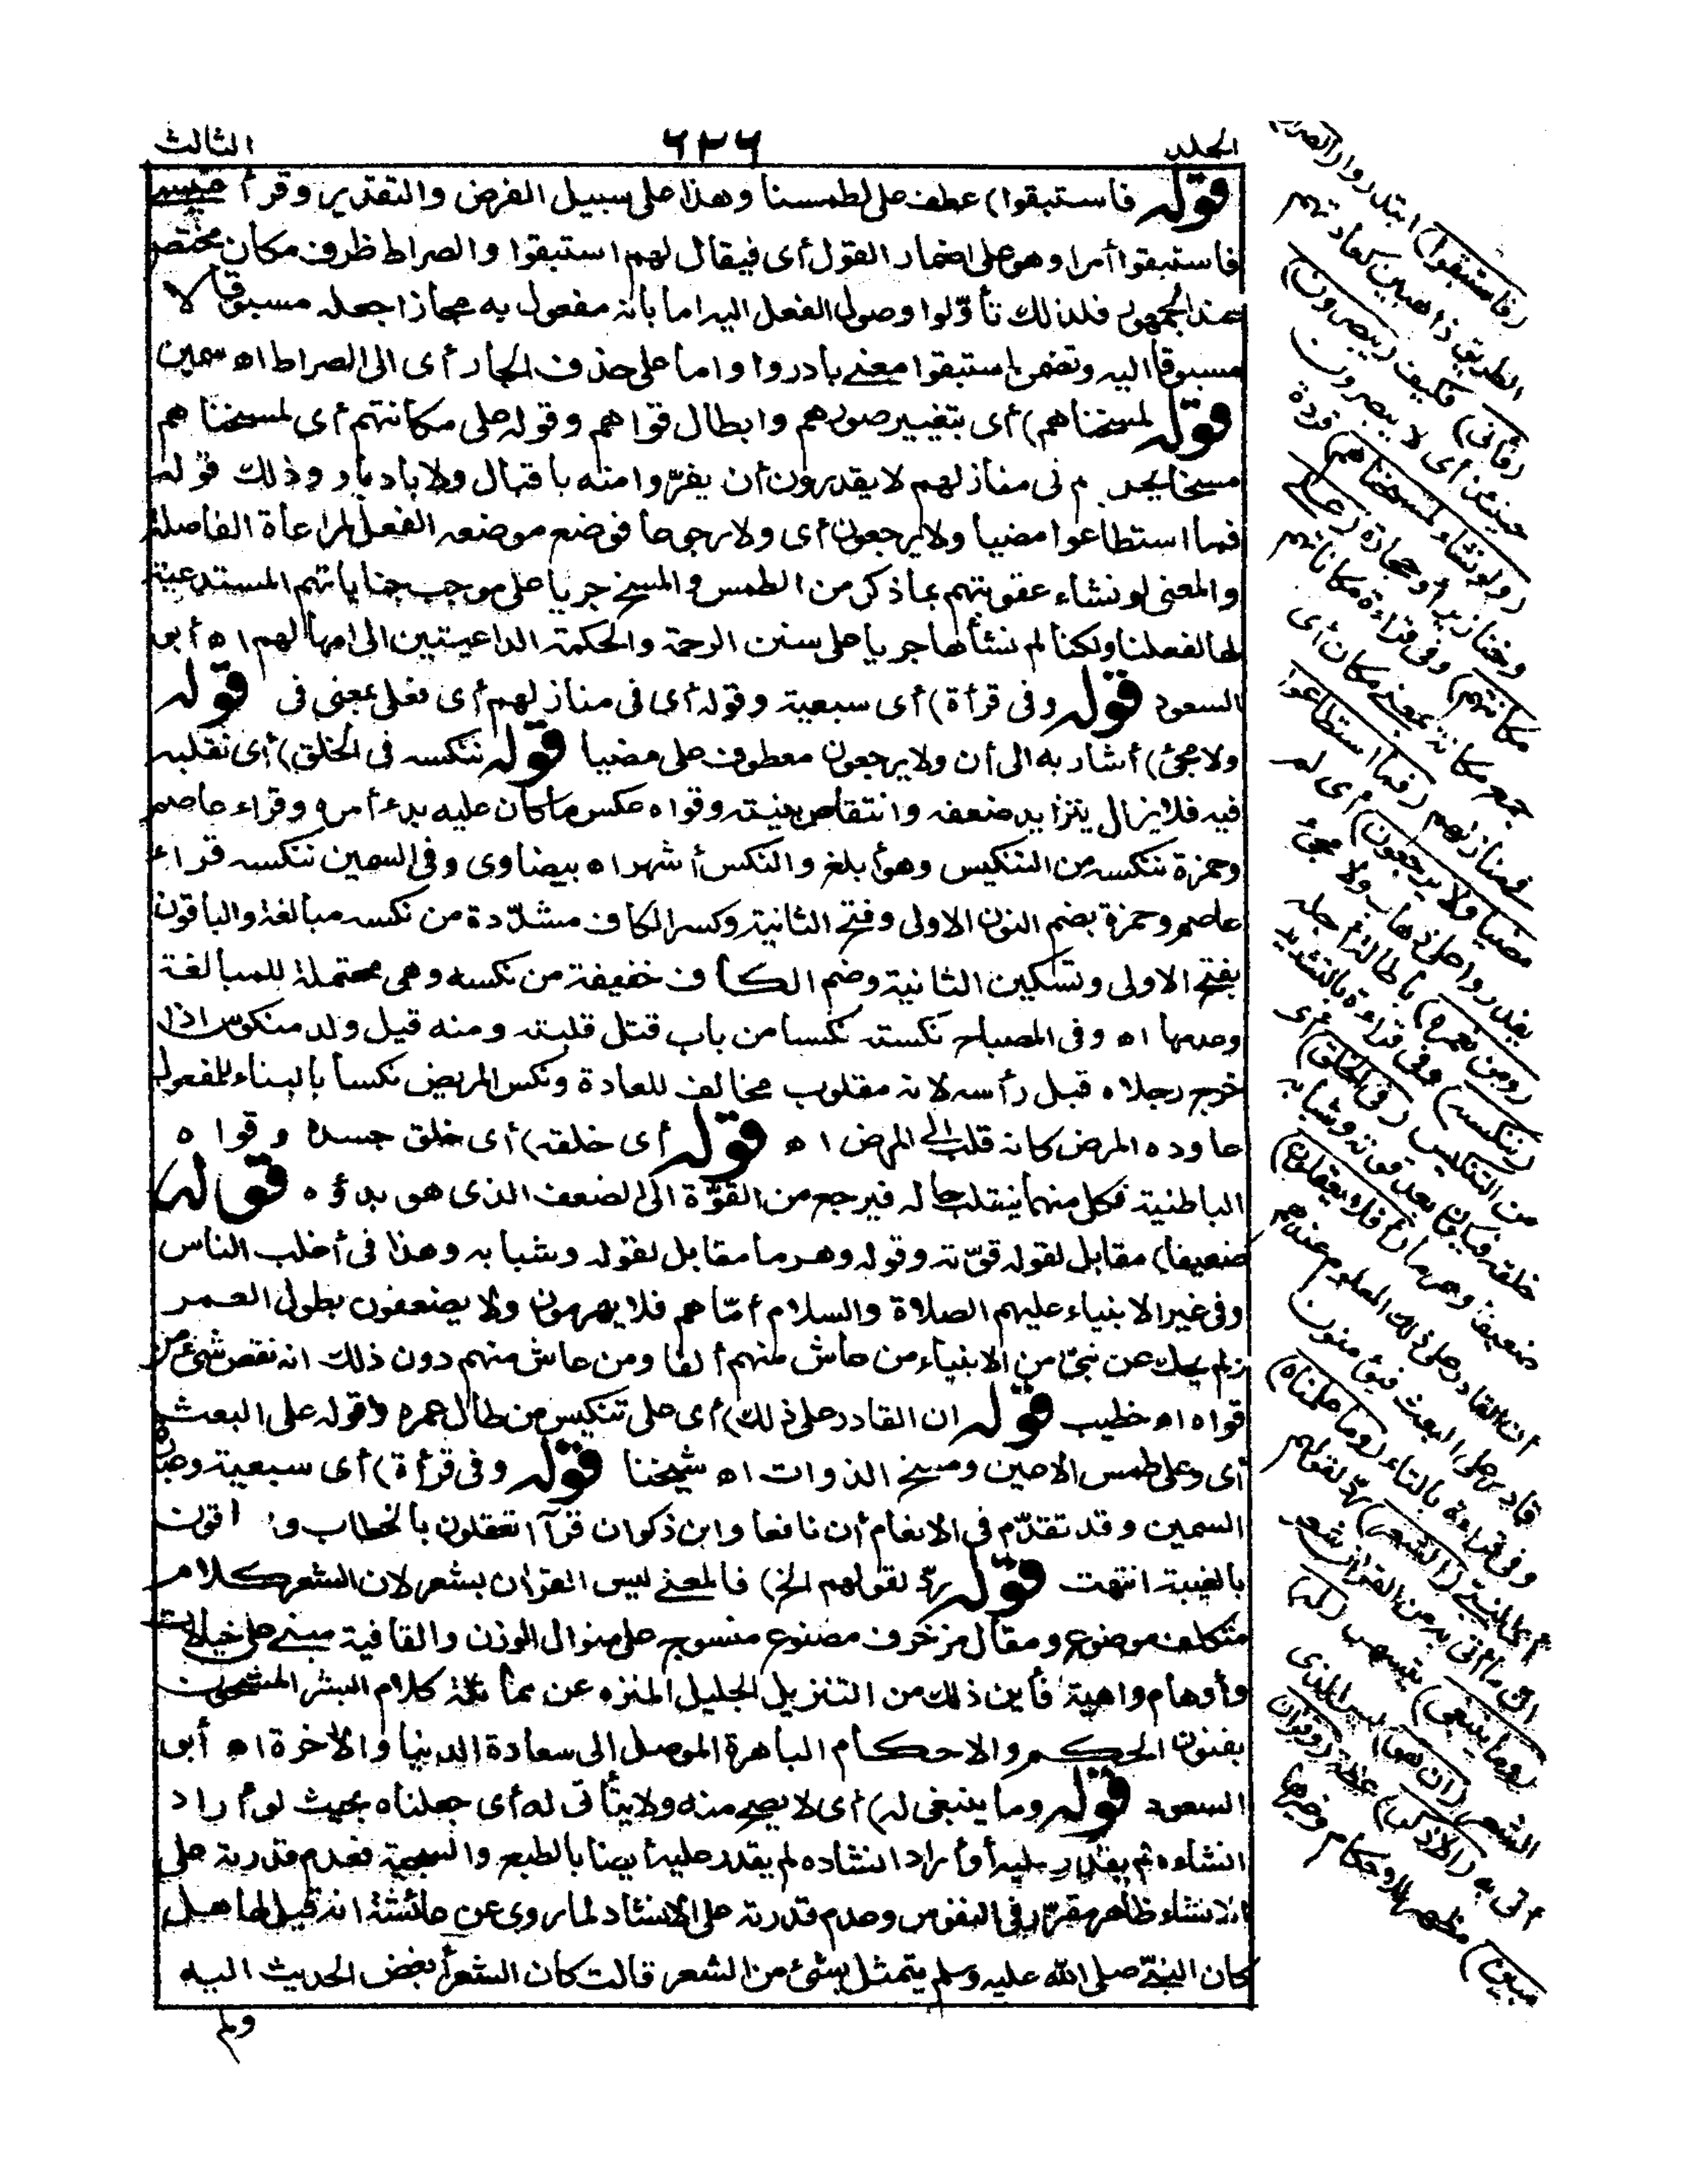 الجلد ٦٢٦ الثالث
قوله فاستبقوا) عطف على لطمسنا وهذا على سبيل الفرض والتقدير وقرأ عيسى
فاستبقوا أمرا وهو على اضمار القول أى فيقال لهم استبقوا والصراط ظرف مكان مختص
عند الجمهور فلذلك تأوّلوا وصول الفعل اليه اما بأنه مفعول به مجازا جعله مسبوقا لا
مسبوقا اليه وتضمن استبقوا معنى بادروا واما على حذف الجار أى الى الصراط اه سمين
قوله لمسخناهم) أى بتغيير صورهم وابطال قواهم وقوله على مكانتهم أى لمسخناهم
مسخا فى منازلهم لا يقدرون أن يفرّوا منه باقبال ولا بادبار وذلك قوله
فما استطاعوا مضيا ولا يرجعون أى ولا رجوعا فوضع موضعه الفعل لمراعاة الفاصلة
والمعنى لو نشاء عقوبتهم بما ذكر من الطمس والمسخ جريا على موجب جناياتهم المستدعية
لها لفعلنا ولكنا لم نشأها جريا على سنن الرحمة والحكمة الداعيتين الى امهالهم اه أبو
السعود قوله وفى قرأة) أى سبعية وقوله أى فى منازلهم أى فعلى بمعنى فى قوله
ولا مجئ) أشار به الى أن ولا يرجعون معطوف على مضيا قوله ننكسه فى الخلق) أى نقلبه
فيه فلا يزال يتزايد ضعفه وانتقاص بنيته وقواه عكس ما كان عليه بدء أمره وقراء عاصم
وحمزة ننكسه من التنكيس وهو أبلغ والنكس أشهر اه بيضاوى وفى السمين ننكسه قراء
عاصم وحمزة بضم النون الاولى وفتح الثانية وكسر الكاف مشدّدة من نكسه مبالغة والباقون
بفتح الاولى وتسكين الثانية وضم الكاف خفيفة من نكسه وهى محتملة للمبالغة
وعدمها اه وفى المصباح نكسته نكسا من باب قتل قلبته ومنه قيل ولد منكوس اذا
خرج رجلاه قبل رأسه لانه مقلوب مخالف للعادة ونكس المريض نكسا بالبناء للمفعول
عاوده المرض كانه قلب الى المرض اه قوله أى خلقه) أى خلق جسده وقواه
الباطنية فكل منهما ينقلب حاله فيرجع من القوّة الى الضعف الذى هو بدؤه قوله
ضعيفا) مقابل لقوله قوّته وقوله وهرما مقابل لقوله وشبابه وهذا فى أغلب الناس
وفى غير الانبياء عليهم الصلاة والسلام أمّا هم فلا يهرمون ولا يضعفون بطول العمر
ولم يحك عن نبىّ من الانبياء من عاش منهم ألفا ومن عاش منهم دون ذلك انه نقص شئ من
قواه اه خطيب قوله ان القادر على ذلك) أى على تنكيس من طال عمره وقوله على البعث
أى وعلى طمس الاعين ومسخ الذوات اه شيخنا قوله وفى قرأة) أى سبعية وعبارة
السمين وقد تقدّم فى الانعام أن نافعا وابن ذكوان قرآ تعقلون بالخطاب والباقون
بالغيبة انتهت قوله ردّ لقولهم الخ) فالمعنى ليس القرآن بشعر لان الشعر كلام
متكلف موضوع ومقال مزخرف مصنوع منسوج على منوال الوزن والقافية مبنى على خيالات
وأوهام واهية فأين ذلك من التنزيل الجليل المنزه عن مماثلة كلام البشر المشحون
بفنون الحكم والاحكام الباهرة الموصل الى سعادة الدينا والاخرة اه أبو
السعود قوله وما ينبغى له) أى لا يصح منه ولا يتأتى له أى جعلناه بحيث لو أراد
انشاءه لم يقدر عليه أو أراد انشاده لم يقدر عليه أيضا بالطبع والسجية فعدم قدرته على
الانشاء ظاهر مقرّر فى النفوس وعدم قدرته على الانشاد لما روى عن عائشة انه قيل لها هل
كان النبىّ صلى الله عليه وسلم يتمثل بشئ من الشعر قالت كان الشعر أبغض الحديث اليه
ولم
(فاستبقوا) ابتدروا (الصراط)
الطريق ذاهبين كعادتهم
(فأنى) فكيف (يبصرون)
حينئذ أى لا يبصرون
(ولو نشاء لمسخناهم) قردة
وخنازير أو حجارة (على
مكانتهم) وفى قراءة مكاناتهم
جمع مكانة بمعنى مكان أى
فى منازلهم (فما استطاعوا
مضيا ولا يرجعون) أى لم
يقدروا على ذهاب ولا مجئ
(ومن نعمره) باطالة أجله
(ننكسه) وفى قراءة بالتشديد
من التنكيس (فى الخلق) أى
خلقه فيكون بعد قوته وشبابه
ضعيفا وهرما (أفلا يعقلون)
أن القادر على ذلك المعلوم عندهم
قادر على البعث فيؤمنون
وفى قراءة بالتاء (وما علمناه)
أى النبىّ (الشعر) ردّ لقولهم
ان ما أتى به من القرآن شعر
(وما ينبغى) يتسهل (له)
الشعر (ان هو) ليس الذى
أتى به (الا ذكر) عظة (وقرآن
مبين) مظهر للاحكام وغيرها